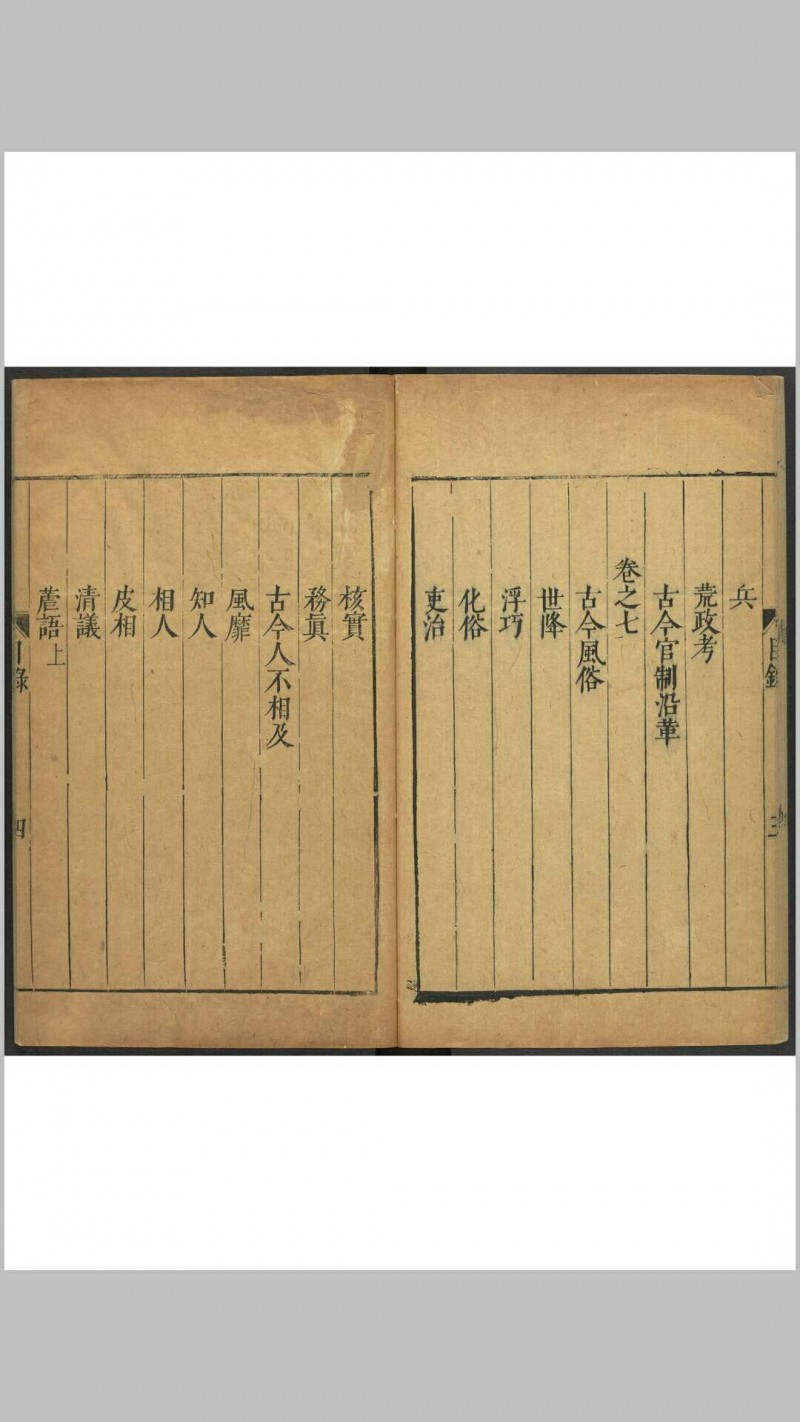 兵
荒政考
古今官制沿革
卷之七
古今風俗
世降
浮巧
化俗
吏治
目錄
三
核實
務眞
古今人不相及
風靡
知人
相人
皮相
清議
蔗語上
目錄
四